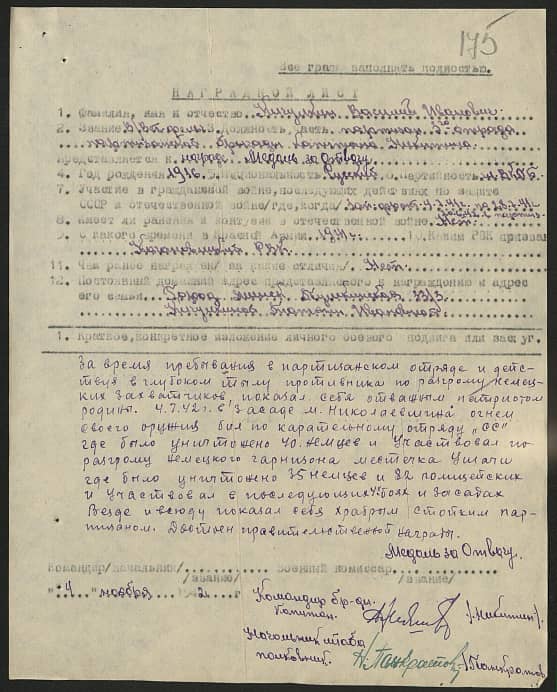 175
Все графы заполнять полностью.
НАГРАДНОЙ ЛИСТ
1. Фамилия, имя и отчество Василий Иванович
2. Звание Должность, часть партизан 3го отряда
партизанской бригады капитана Никитина
представляется к награде Медаль за Отвагу
4. Год рождения 1916 Национальность Русский Партийность
7. Участие в гражданской войне, последующих действиях по защите
СССР и отечественной войне/где, когда/
8. Имеет ли ранения и контузии в отечественной войне Нет
9. С какого времени в Красной Армии 1941г. 10. Каким РВК призван
РВК
11. Чем ранее награжден/за какие отличия/ Нет
12. Постоянный домашний адрес представляемого к награждению и адрес
его семьи Город Минск
Ивановна
1. Краткое, конкретное изложение личного боевого подвига или заслуг.
За время пребывания в партизанском отряде и дейст-
вуя в глубоком тылу противника по разгрому немец-
ких захватчиков, показал себя отважным патриотом
родины. 4.7.42г. в засаде м. Николаевщина огнем
своего оружия бил по карательному отряду "СС"
где было уничтожено 40 немцев и участвовал по
разгрому немецкого гарнизона местечка Ушачи
где было уничтожено 35 немцев и 82 полицейских
и участвовал в последующих боях и засадах
Везде и всюду показал себя храбрым стойким пар-
тизаном. Достоин правительственной награды.
Медаль за Отвагу.
Командир/начальник/ военный комиссар
/звание/ /звание/
"4" ноября 1942 г
Командир бр-ды
Капитан /Никитин/.
Начальник штаба
полковник. /Панкратов